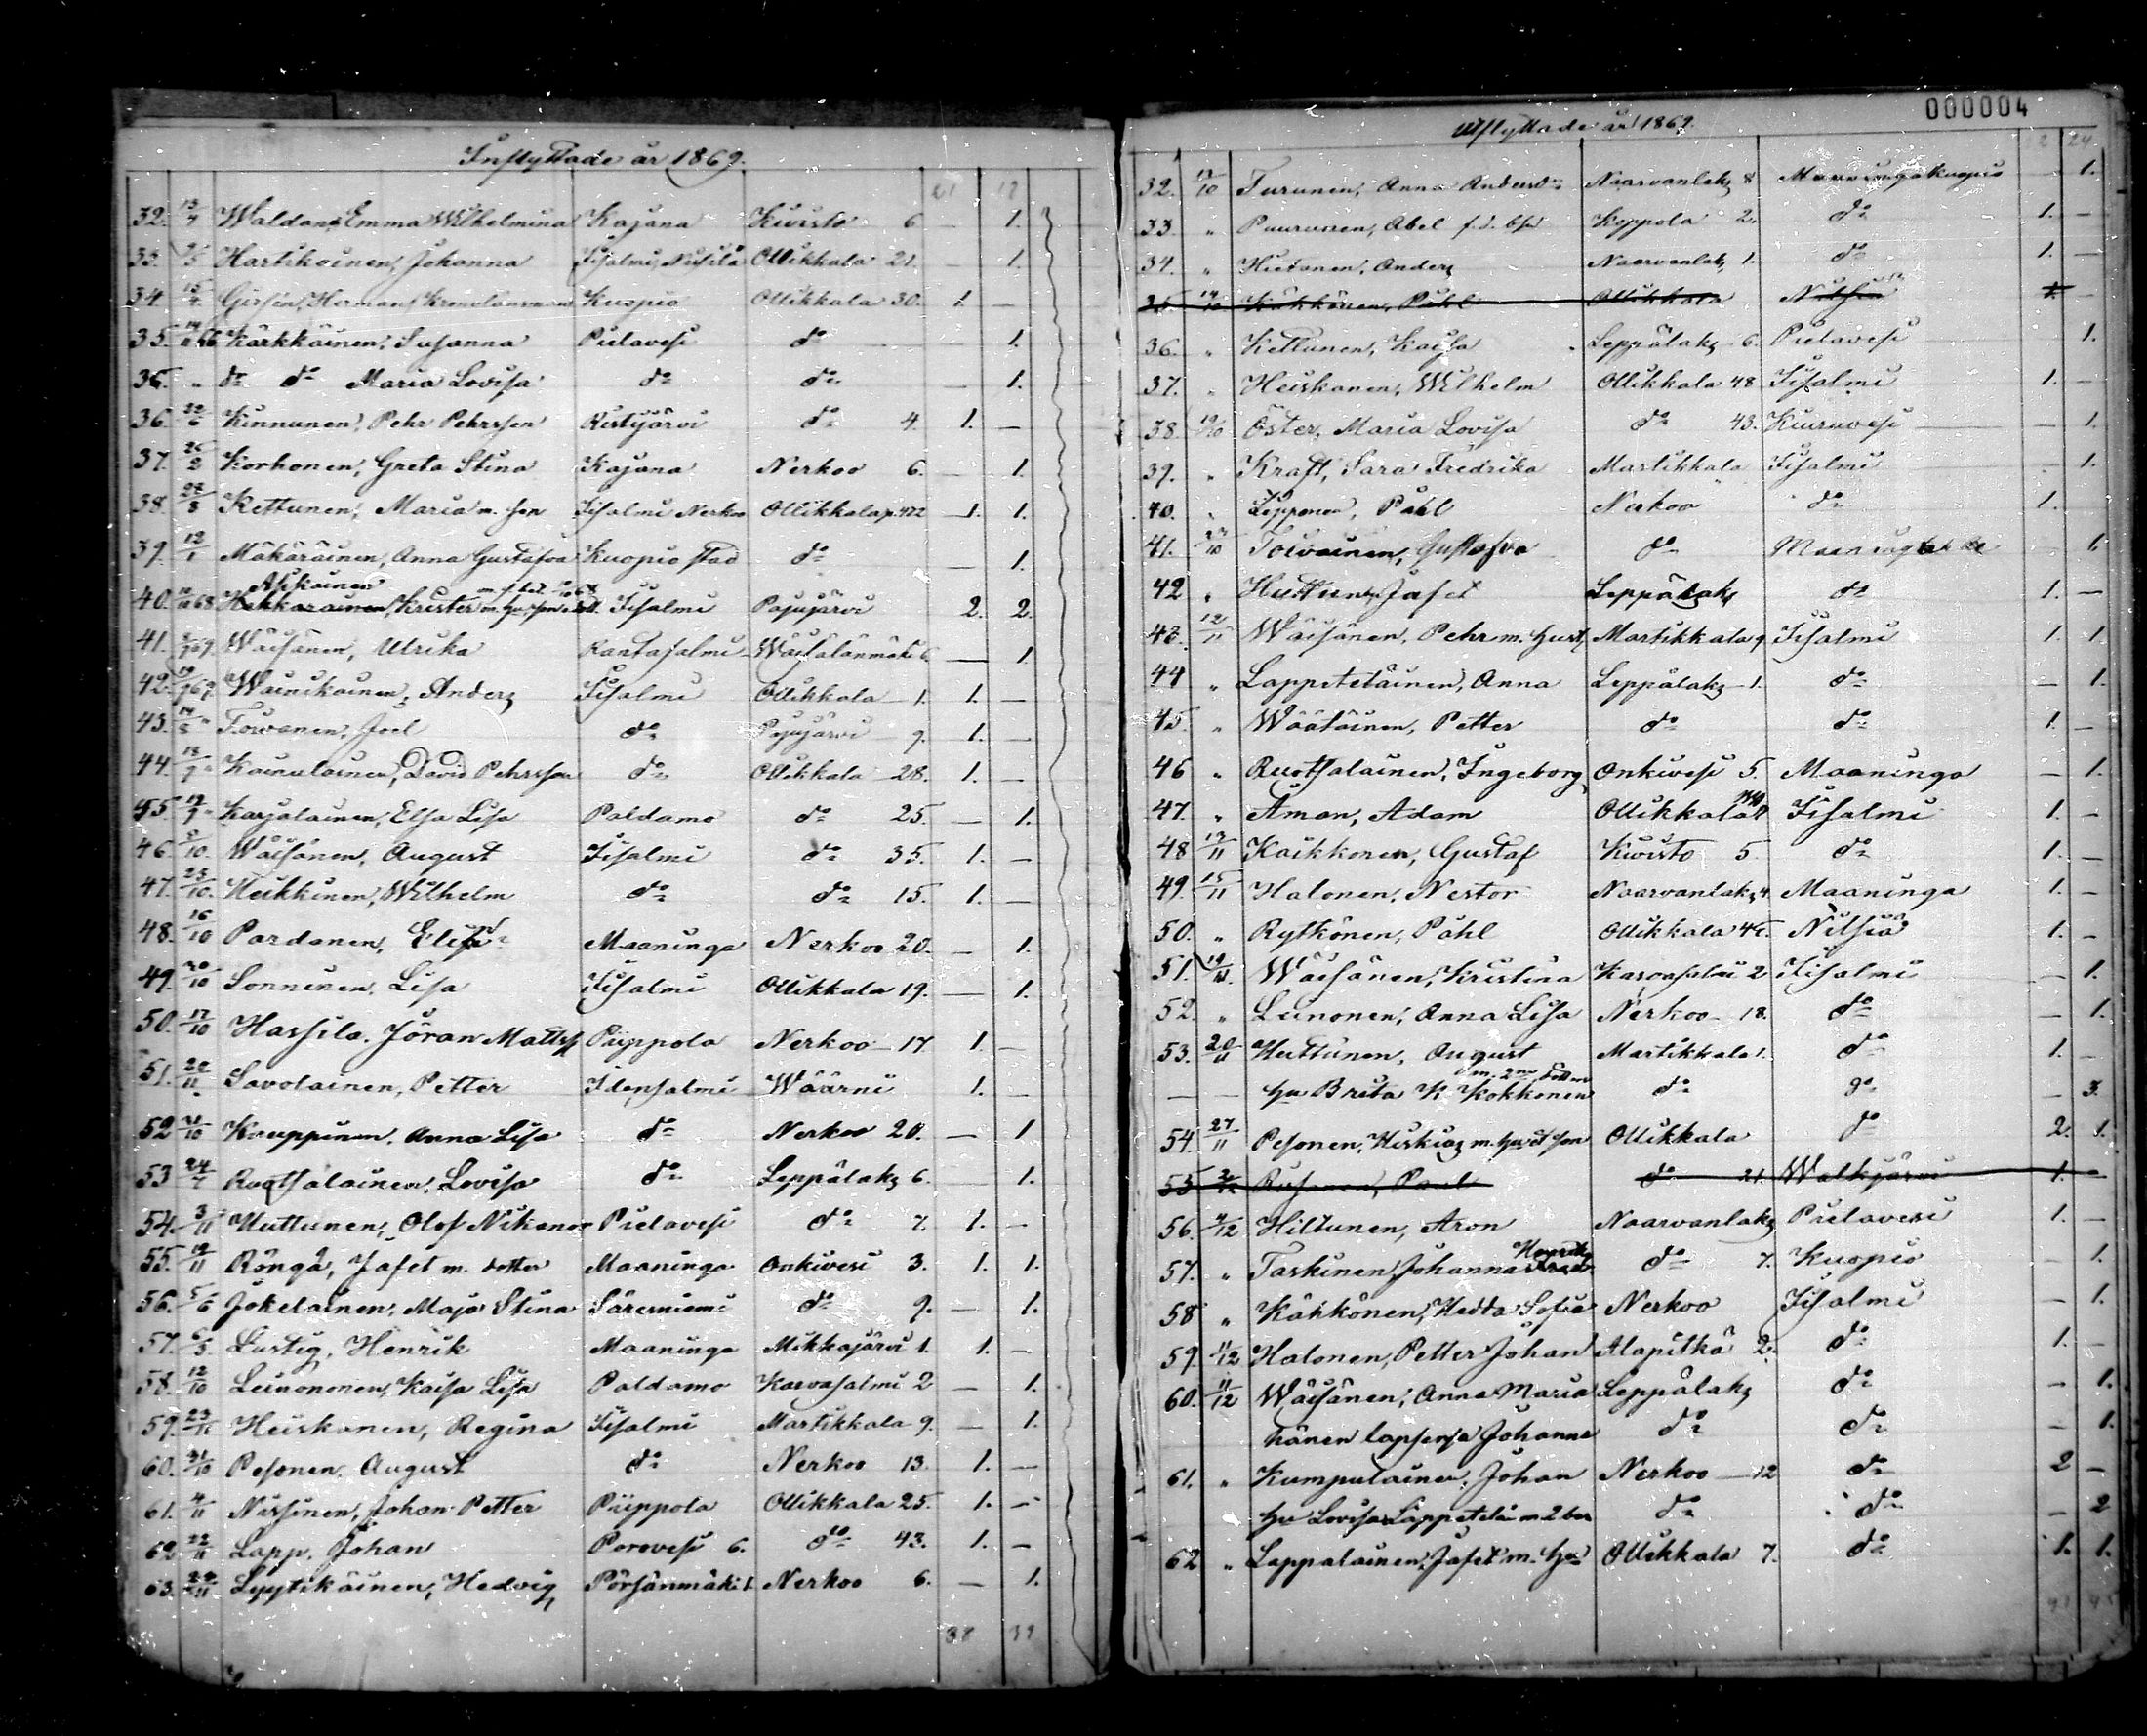 Inflyttade år 1869.
21 17
32. 13/4 Waldan, Emma Wilhelmina Kajana Kivisto 6 — 1.
33. /5 Hartikainen, Johanna Iisalmi, Ollikkala 21. — 1.
34. 15/4 Herman Kronolänsman Kuopio Ollikkala 30. 1. —
35. Kärkkäinen, Susanna Pielavesi do 1.
36. " do do Maria Lovisa do do — 1.
36. Kinnunen, Pehr Pehrsson Ristijärvi do 4. 1. —
37. 26/2 Korhonen, Greta Stina Kajana Nerkoo 6. — 1.
38. 28/8 Kettunen, Maria m. son Iisalmi Nerkoo Ollikkala p. 472 1. 1.
39. 12/1 Mäkäräinen, Anna Gustafva Kuopio stad do — 1.
Asikainen
40. Hakkarainen, Krister m. hu, son o dott. Iisalmi Pajujärvi 2. 2.
41. Wäisänen, Ulrika Rantasalmi Wäisälänmäki 6. — 1.
42. Wainikainen, Anders Iisalmi Ollikkala 1. 1. —
43. 14/8 " Toivanen, Joel do Pajujärvi 9. 1. —
44. 18/9 " Kainulainen, David Pehrsson do Ollikkala 28. 1. —
45. 19/9 " Karjalainen, Elsa Lisa Paldamo do 25. — 1.
46. /10. Wäisänen, August Iisalmi do 35. 1. —
47. 25/10. Heikkinen, Wilhelm do do 15. 1. —
48. 16/10 Pardanen, Maaninga Nerkoo 20. — 1.
49. 20/10 Sonninen, Lisa Iisalmi Ollikkala 19. — 1.
50. 17/10 Hassila, Jöran Mattss Piippola Nerkoo 17. 1. —
51. 22/11 Savolainen, Petter Idensalmi Wäärni 1. —
52 21/10 Kauppinen, Anna Lisa do Nerkoo 20. — 1
53 24/ Ruotsalainen, Lovisa do Leppälaks 6. 1.
54. 3/11 Huttunen, Olof Nikanor Pielavesi do 7. 1. —
55. 19/11 Röngä, Jafet m. dotter Maaninga Onkivesi 3. 1. 1.
56. 5/6 Jokelainen, Maja Stina Säresniemi do 9. — 1.
57. 6/5. Lustig, Henrik Maaninga Mikkajärvi 1. 1. —
58. 12/10 Leinononen, Kaisa Lisa Paldamo Karvasalmi 2 — 1.
59. 23/ Heiskanen, Regina Iisalmi Martikkala 9. — 1.
60. 31/10 Pesonen, August do Nerkoo 13. 1. —
61. 4/11 Nissinen, Johan Petter Piippola Ollikkala 25. 1. —
62 22/11 Lapp, Johan Porovesi 6. do 43. 1. —
63. /11 Lyytikäinen, Hedvig Pörsänmäki 1. Nerkoo 6. — 1.
38 39
000004
Utflyttade år 1869.
2 24
32. 13/10 Turunen, Anna Andersdr Naarvanlaks 8 Maaninga kuopio 1.
33 " Puurunen, Abel Koppola 2. do 1. —
34. " Hietanen, Anders Naarvanlaks 1. do 1. —
35 14/10 Kähkönen, Påhl Ollikkala Nilsiä 1. —
36. " Kettunen, Kaisa Leppälaks 6. Pielavesi 1.
37. " Heiskanen, Wilhelm Ollikkala 48 Iisalmi 1. —
38. 19/10 Öster, Maria Lovisa do 43. Kiuruvesi — 1.
39. " Kraft, Sara Fredrika Martikkala Iisalmi 1.
40. " Lepponen, Påhl Nerkoo do 1.
41. /10 Toivainen, Gustafva do 1.
42 " Huttunen, Jafet Leppälaks do 1. —
43. 12/11 Wäisänen, Pehr m. hust, Martikkala 9 Iisalmi 1. 1
44 " Lappeteläinen, Anna Leppälaks 1. do — 1.
45 " Wäätäinen, Petter do do 1. —
46 " Ruotsalainen, Ingeborg Onkivesi 5. Maaninga — 1.
47. " Åman, Adam Ollikkala Iisalmi 1. —
48 13/11 Kaikkonen, Gustaf Kivisto 5. do 1. —
49. 15/11 Halonen, Nestor Naarvanlaks 4. Maaninga 1. —
50. " Rytkönen, Påhl Ollikkala Nilsiä 1. —
51. 19/11. Wäisänen, Kristina Karvasalmi 2 Iisalmi — 1.
52. " Leinonen, Anna Lisa Nerkoo 18. do — 1.
53. 20/11 Huttunen, August Martikkala 1. do 1. —
m. 2ne dottrar
— — hu Brita K Kokkonen do do — 3.
54. 27/11 Pesonen, Hiskias m. hu et son Ollikkala do 2. 1.
55 2/12 Rissanen, Paul do 21. Walkjärvi 1. —
56. 4/12 Hiltunen, Aron Naarvanlaks Pielavesi 1. —
57. " Taskinen, Johanna do 7. Kuopio — 1.
58 " Kähkönen, Hedda Sofia Nerkoo Iisalmi — 1.
59. /12 Halonen, Petter Johan Alapitkä 2. do 1. —
60. 11/12 Wäisänen, Anna Maria Leppälaks do — 1.
hänen lapsensa Johanna do do — 1.
61. " Kumpulainen, Johan Nerkoo 12 do 2 —
hu Lovisa Lappetelä. m 2 bar do do — 2
62 " Lappalainen, Jafet m. hu Ollikkala 7. do 1. 1.